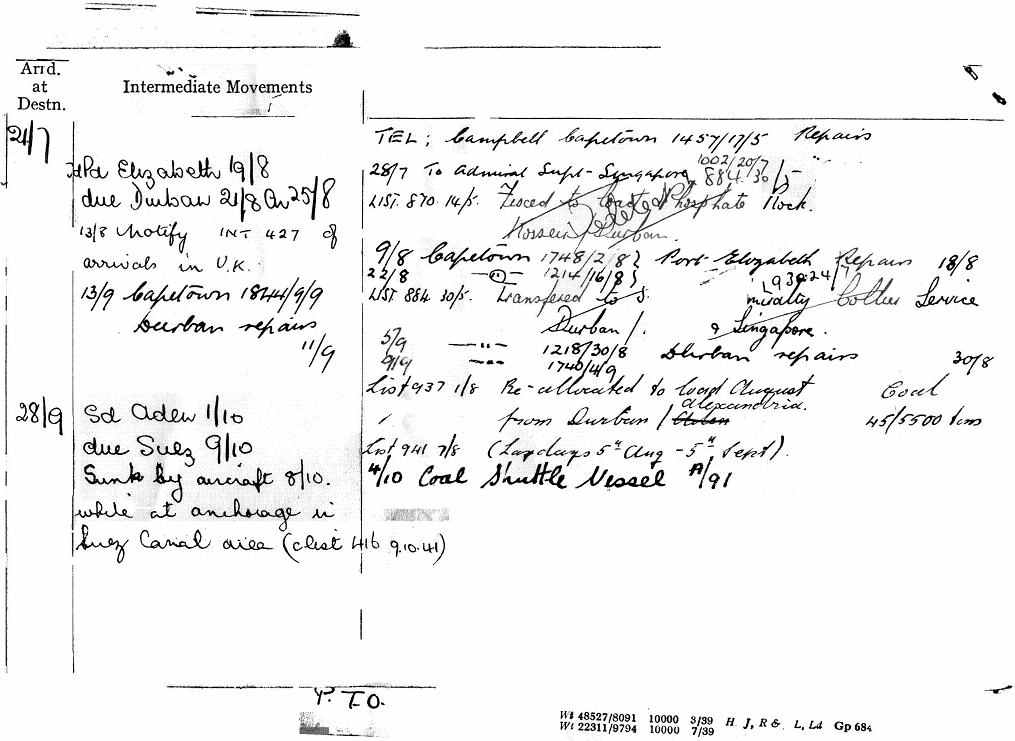 Arrd.
at
Destn.
Intermediate Movements
21/7
Pd Elizabeth 19/8
due Durban 21/8 Arr 25/8
13/8 Notify INT 427 of
arrivals in U.K.
13/9 Capetown 1844/9/9
Durban repairs
11/9
28/9 Sd Aden 1/10
due Suez 9/10
Sunk by aircraft 8/10.
while at anchorage in
Suez Canal area (clist 416 9.10.41)
TEL; Campbell Capetown 1457/17/5 Repairs
1002/20/7
28/7 To Admiral Supt- Singapore 884 30/5
LIST. 870. 14/5. Fixed to load Phosphate Rock.
Deleted
Kosseir/Durban.
9/8 Capetown 1748/2/8 } Port Elizabeth Repairs 18/8
22/8 —"— 1214/16/8 }
1939.24/7
LIST 884 30/5. Transfered to Collier Service
Durban/. & Singapore.
5/9 —"— 1218/30/8 Durban repairs 30/8
9/9 —"— 1740/4/9
List 937 1/8 Re-allocated to load August Coal
Alexandria.
" from Durban / 45/5500 tons
List 941 7/8 (Laydays 5th Aug - 5th Sept).
4/10 Coal Shuttle Vessel A/91
P.T.O.
Wt 48527/8091 10000 3/39 H. J, R & L, Ld Gp 684
Wt 22311/9794 10000 7/39